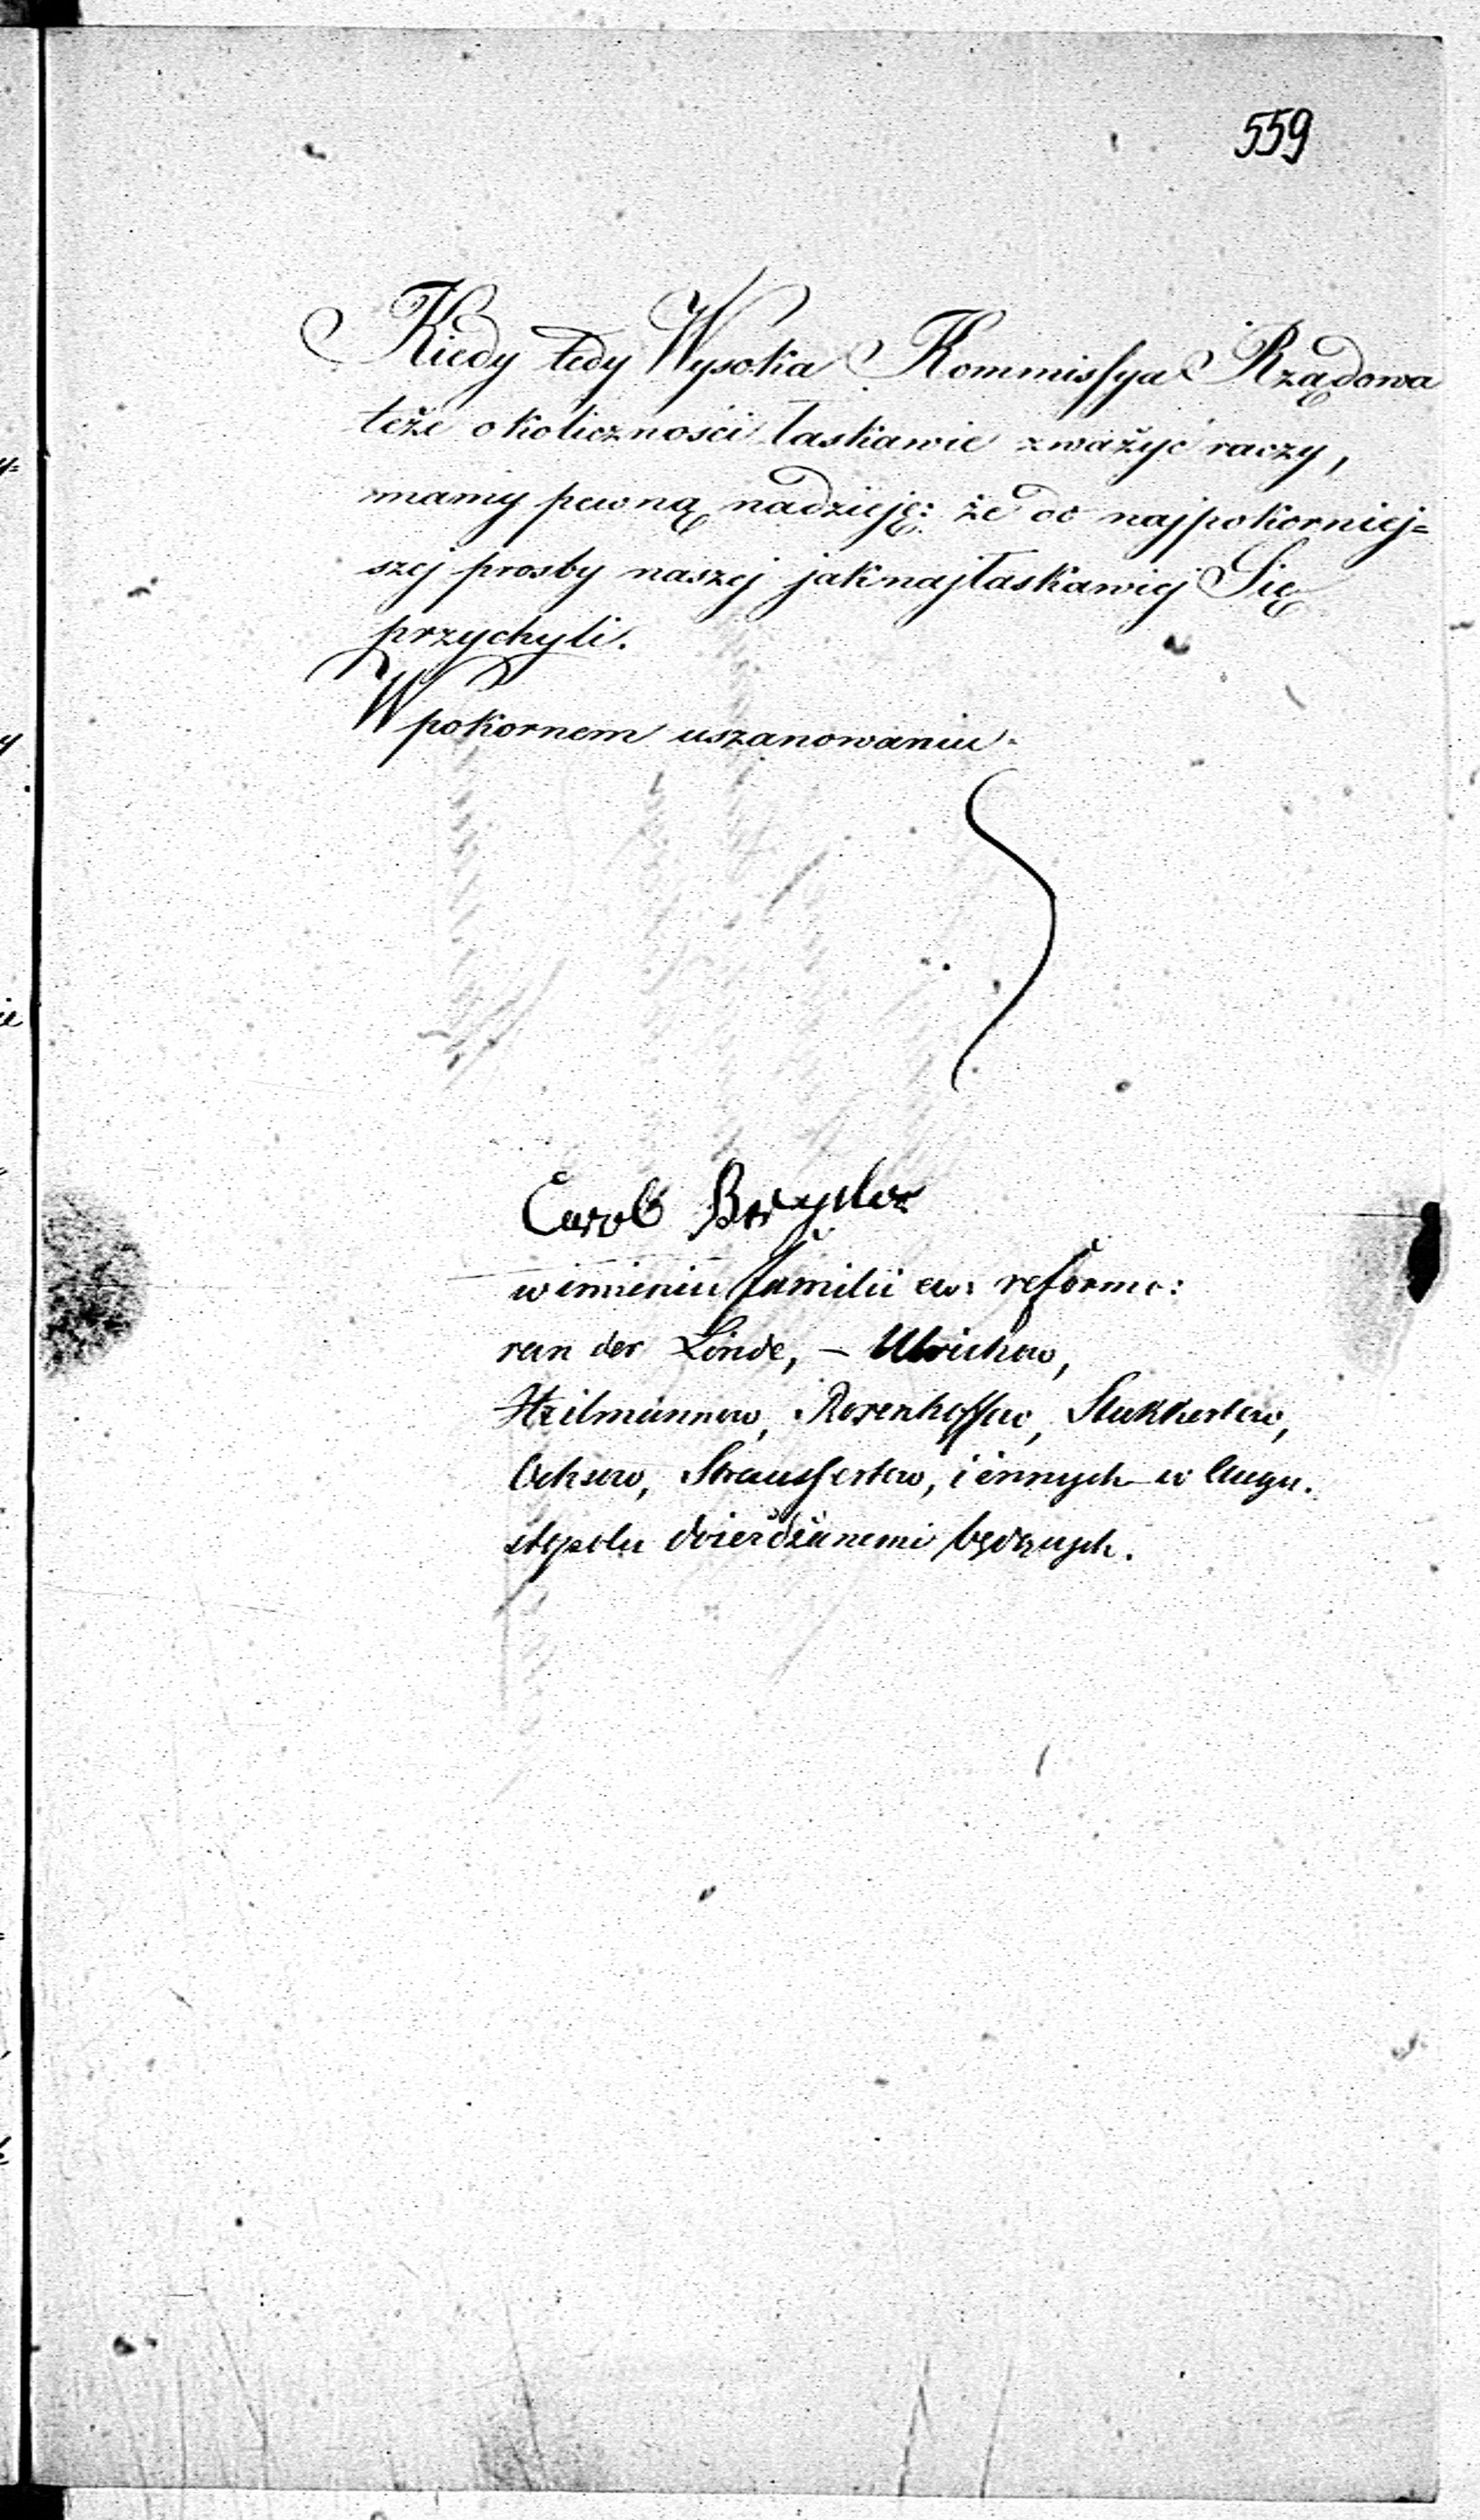 559
Kiedy tedy Wysoka Kommissya Rządowa
też okoliczności łaskawie zważyć raczy,
mamy pewną nadzieję: że do najpokorniej=
szej prosby naszej jaknajłaskawiej Się
przychyli.
W pokornem uszanowaniu.
Carol
w imieniu familii ew: reform:
van der Linde, – Ulrichow,
Heilmannow, Rosenhoffow, Stukkertow,
Ochsow, Strausfertow, i innych w Augu.
stopolu dzierdżanemi będących.